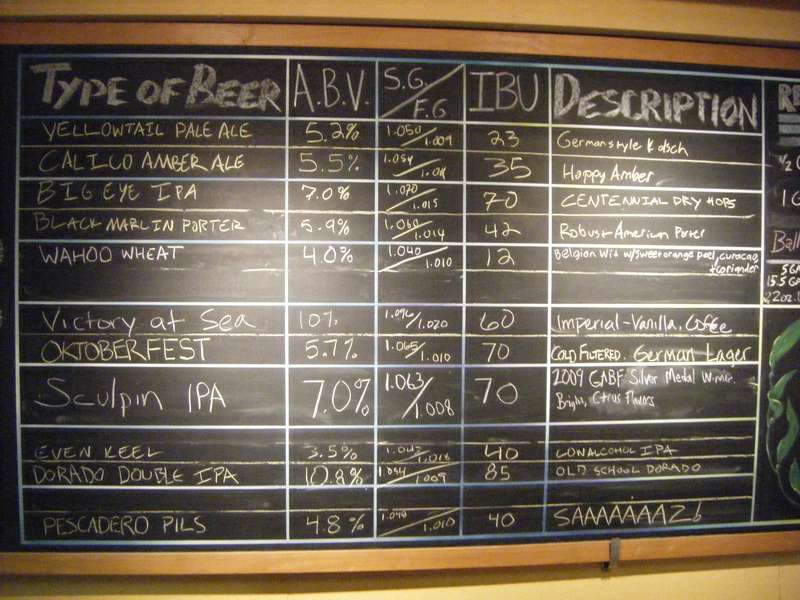 TYPE OF BEER A.B.V. S.G./F.G. IBU DESCRIPTION
YELLOWTAIL PALE ALE 5.2% 1.050/1.009 23 German style Kolsch
CALICO AMBER ALE 5.5% 1.054/ 35 Hoppy Amber
BIG EYE IPA 7.0% 1.070/1.015 70 CENTENNIAL DRY HOPS
BLACK MARLIN PORTER 5.9% 1.060/1.014 42 Robust American Porter
WAHOO WHEAT 4.0% 1.040/1.010 12 Belgian Wit w/sweet orange peel, curacao,
+coriander
Victory at Sea 10% 1.096/1.020 60 Imperial-Vanilla, Coffee
OKTOBERFEST 5.7% 1.065/1.010 70 COLD FILTERED. German Lager
Sculpin IPA 7.0% 1.063/1.008 70 2009 GABF Silver Medal Winner
Bright, Citrus Flavors
EVEN KEEL 3.5% 40 LOW ALCOHOL IPA
DORADO DOUBLE IPA 10.8% 1.094/1.009 85 OLD SCHOOL DORADO
PESCADERO PILS 4.8% 1.048/1.010 40 SAAAAAAZ